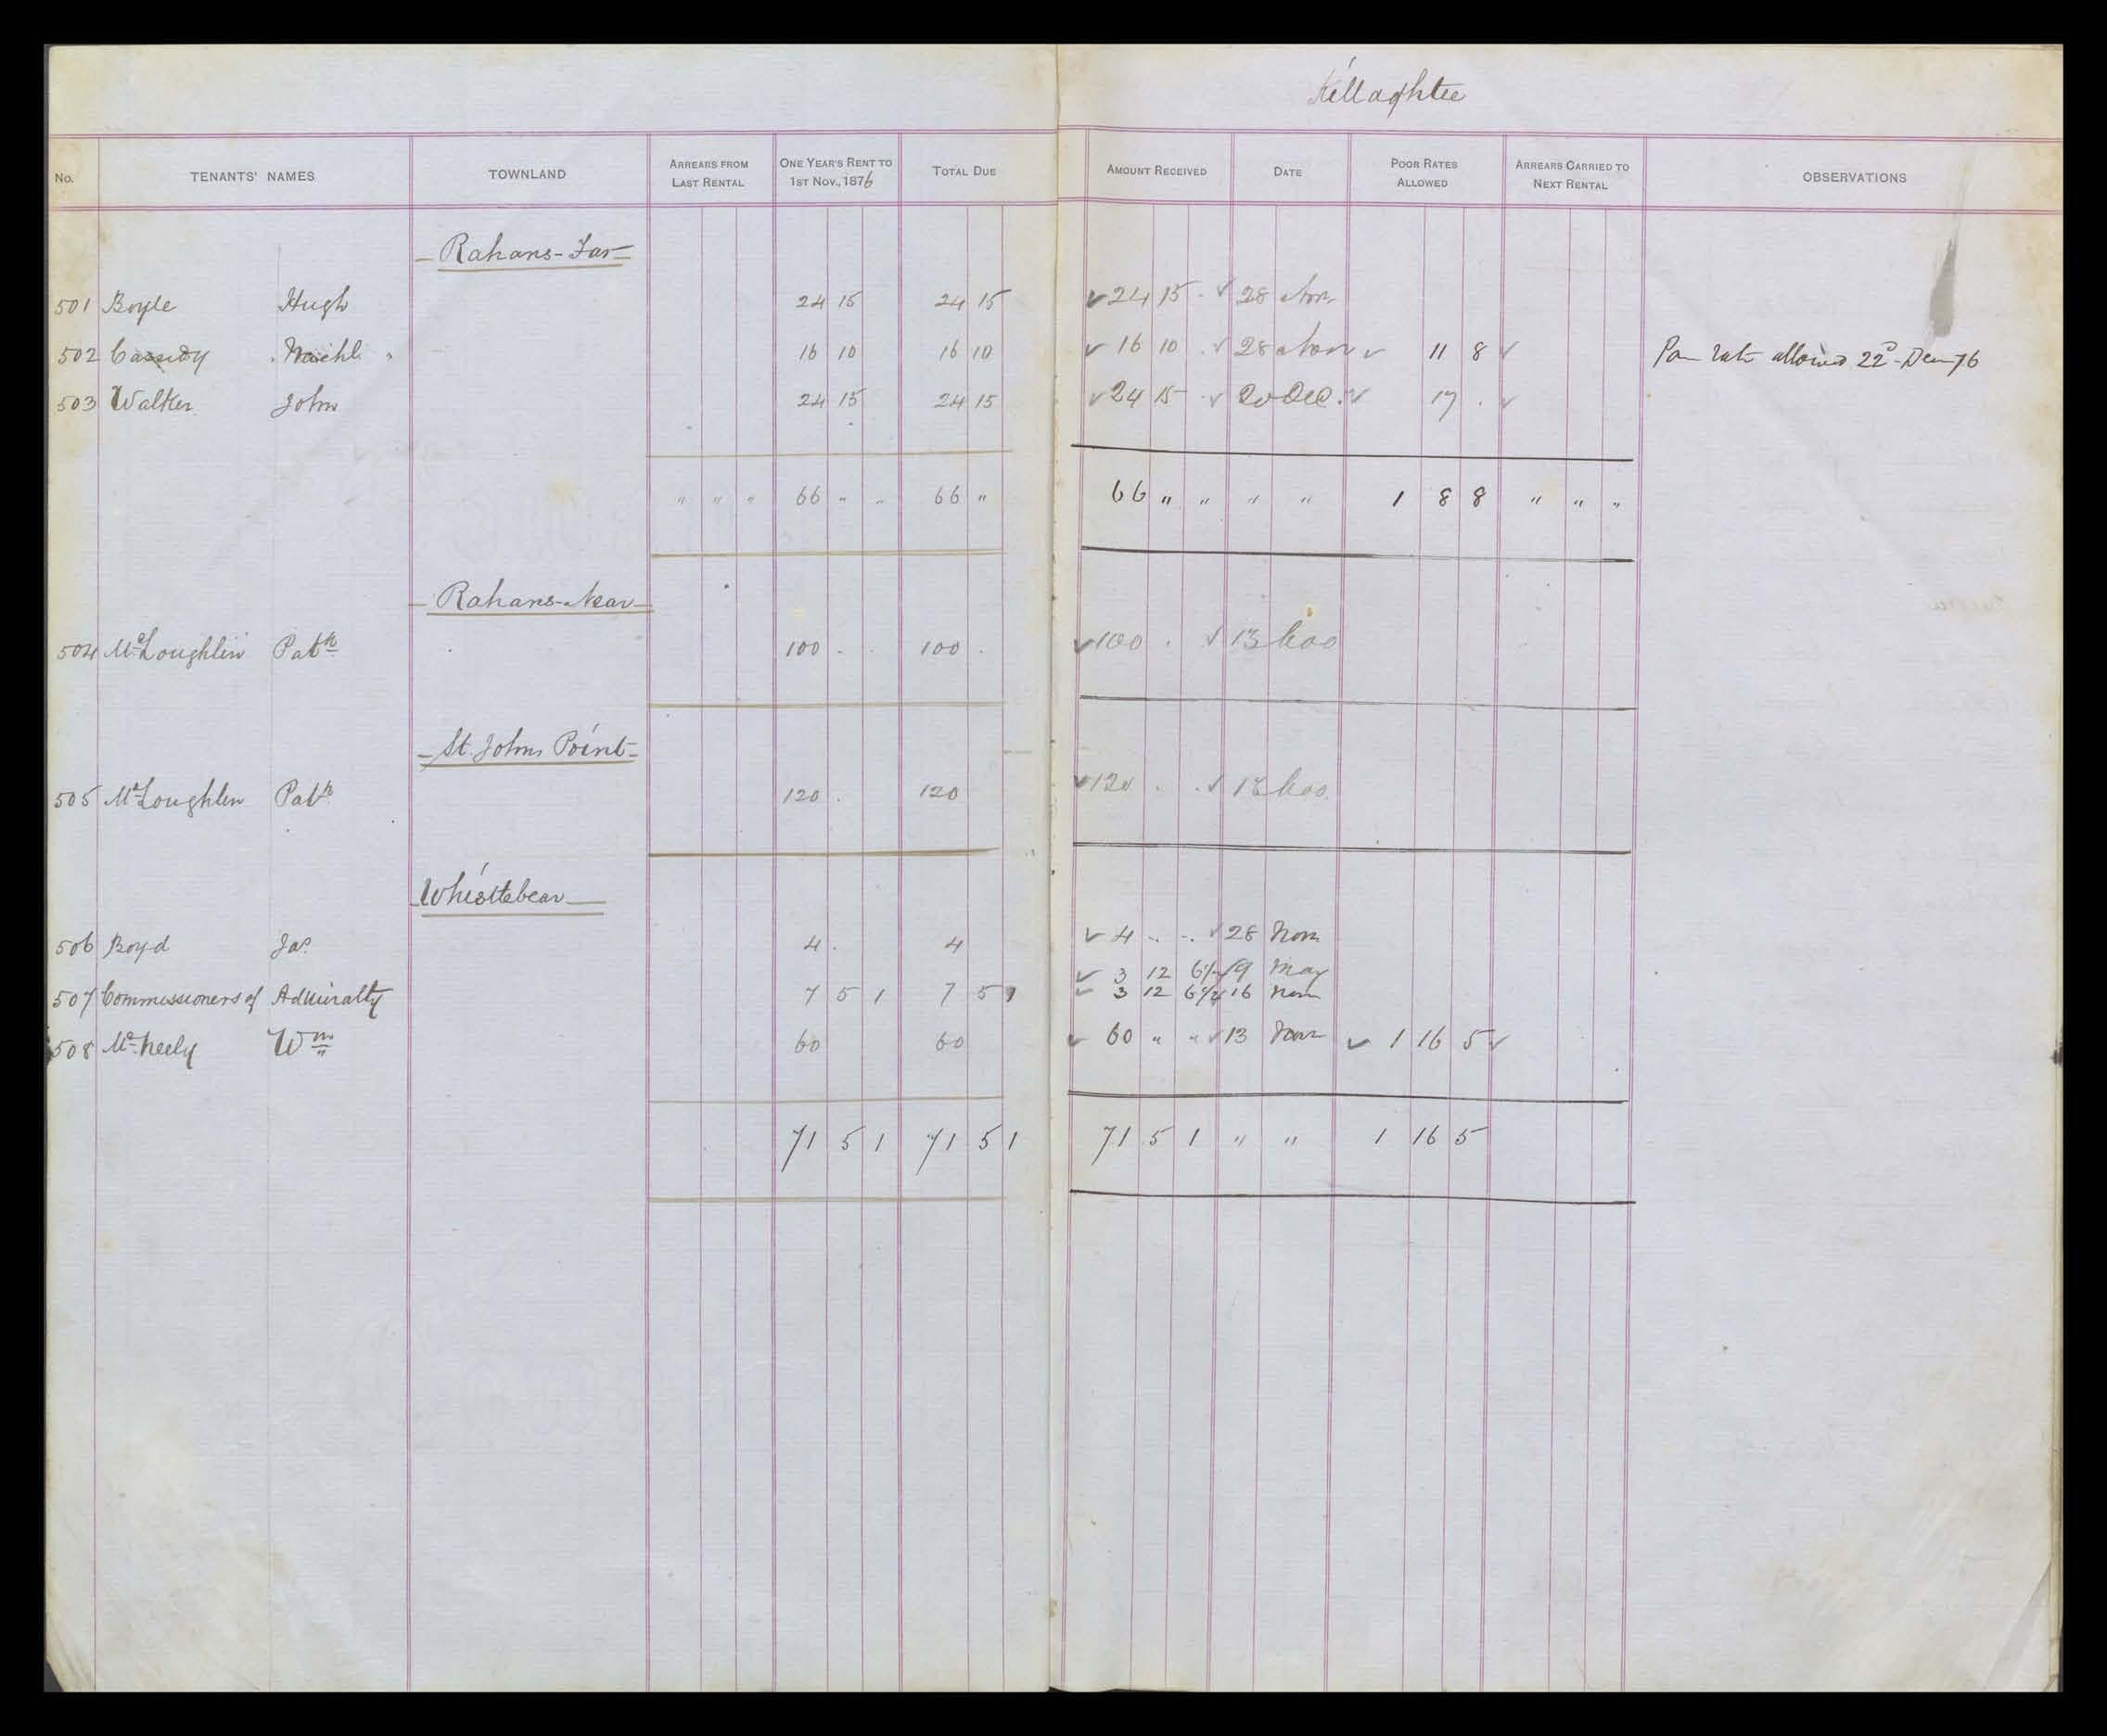 Killaghtee
No. TENANTS' NAMES TOWNLAND ARREARS FROM LAST RENTAL ONE YEAR'S RENT TO 1ST NOV., 1876 TOTAL DUE AMOUNT RECEIVED DATE POOR RATES ALLOWED ARREARS CARRIED TO NEXT RENTAL OBSERVATIONS
- Rahans-Far -
501 Boyle Hugh 24 15 24 15 ✓ 24 15 . ✓ 28 Nov
502 Cassidy Michl 16 10 16 10 ✓ 16 10 . ✓ 28 Nov ✓ 11 8 ✓ Poor rate allowed 22d Dec 76
503 Walker John 24 15 24 15 ✓ 24 15 . ✓ 20 Dec. ✓ 17 . ✓
" " " 66 " " 66 " 66 " " " " 1 8 8 " " "
- Rahans-Near -
504 McLoughlin Patk 100 . . 100 . ✓ 100 . ✓ 13
- St. Johns Point -
505 McLoughlin Patk 120 . 120 ✓ 120 . . ✓ 13
- Whistlebear -
506 Boyd Jas 4 . 4 ✓ 4 . . ✓ 28 Nov
✓ 3 12 6½ 19 May
507 Commissioners of Admiralty 7 5 1 7 5 1 ✓ 3 12 6½ 16 Nov
508 McNeely Wm 60 60 ✓ 60 " " ✓ 13 ✓ 1 16 5 ✓
71 5 1 71 5 1 71 5 1 " " 1 16 5